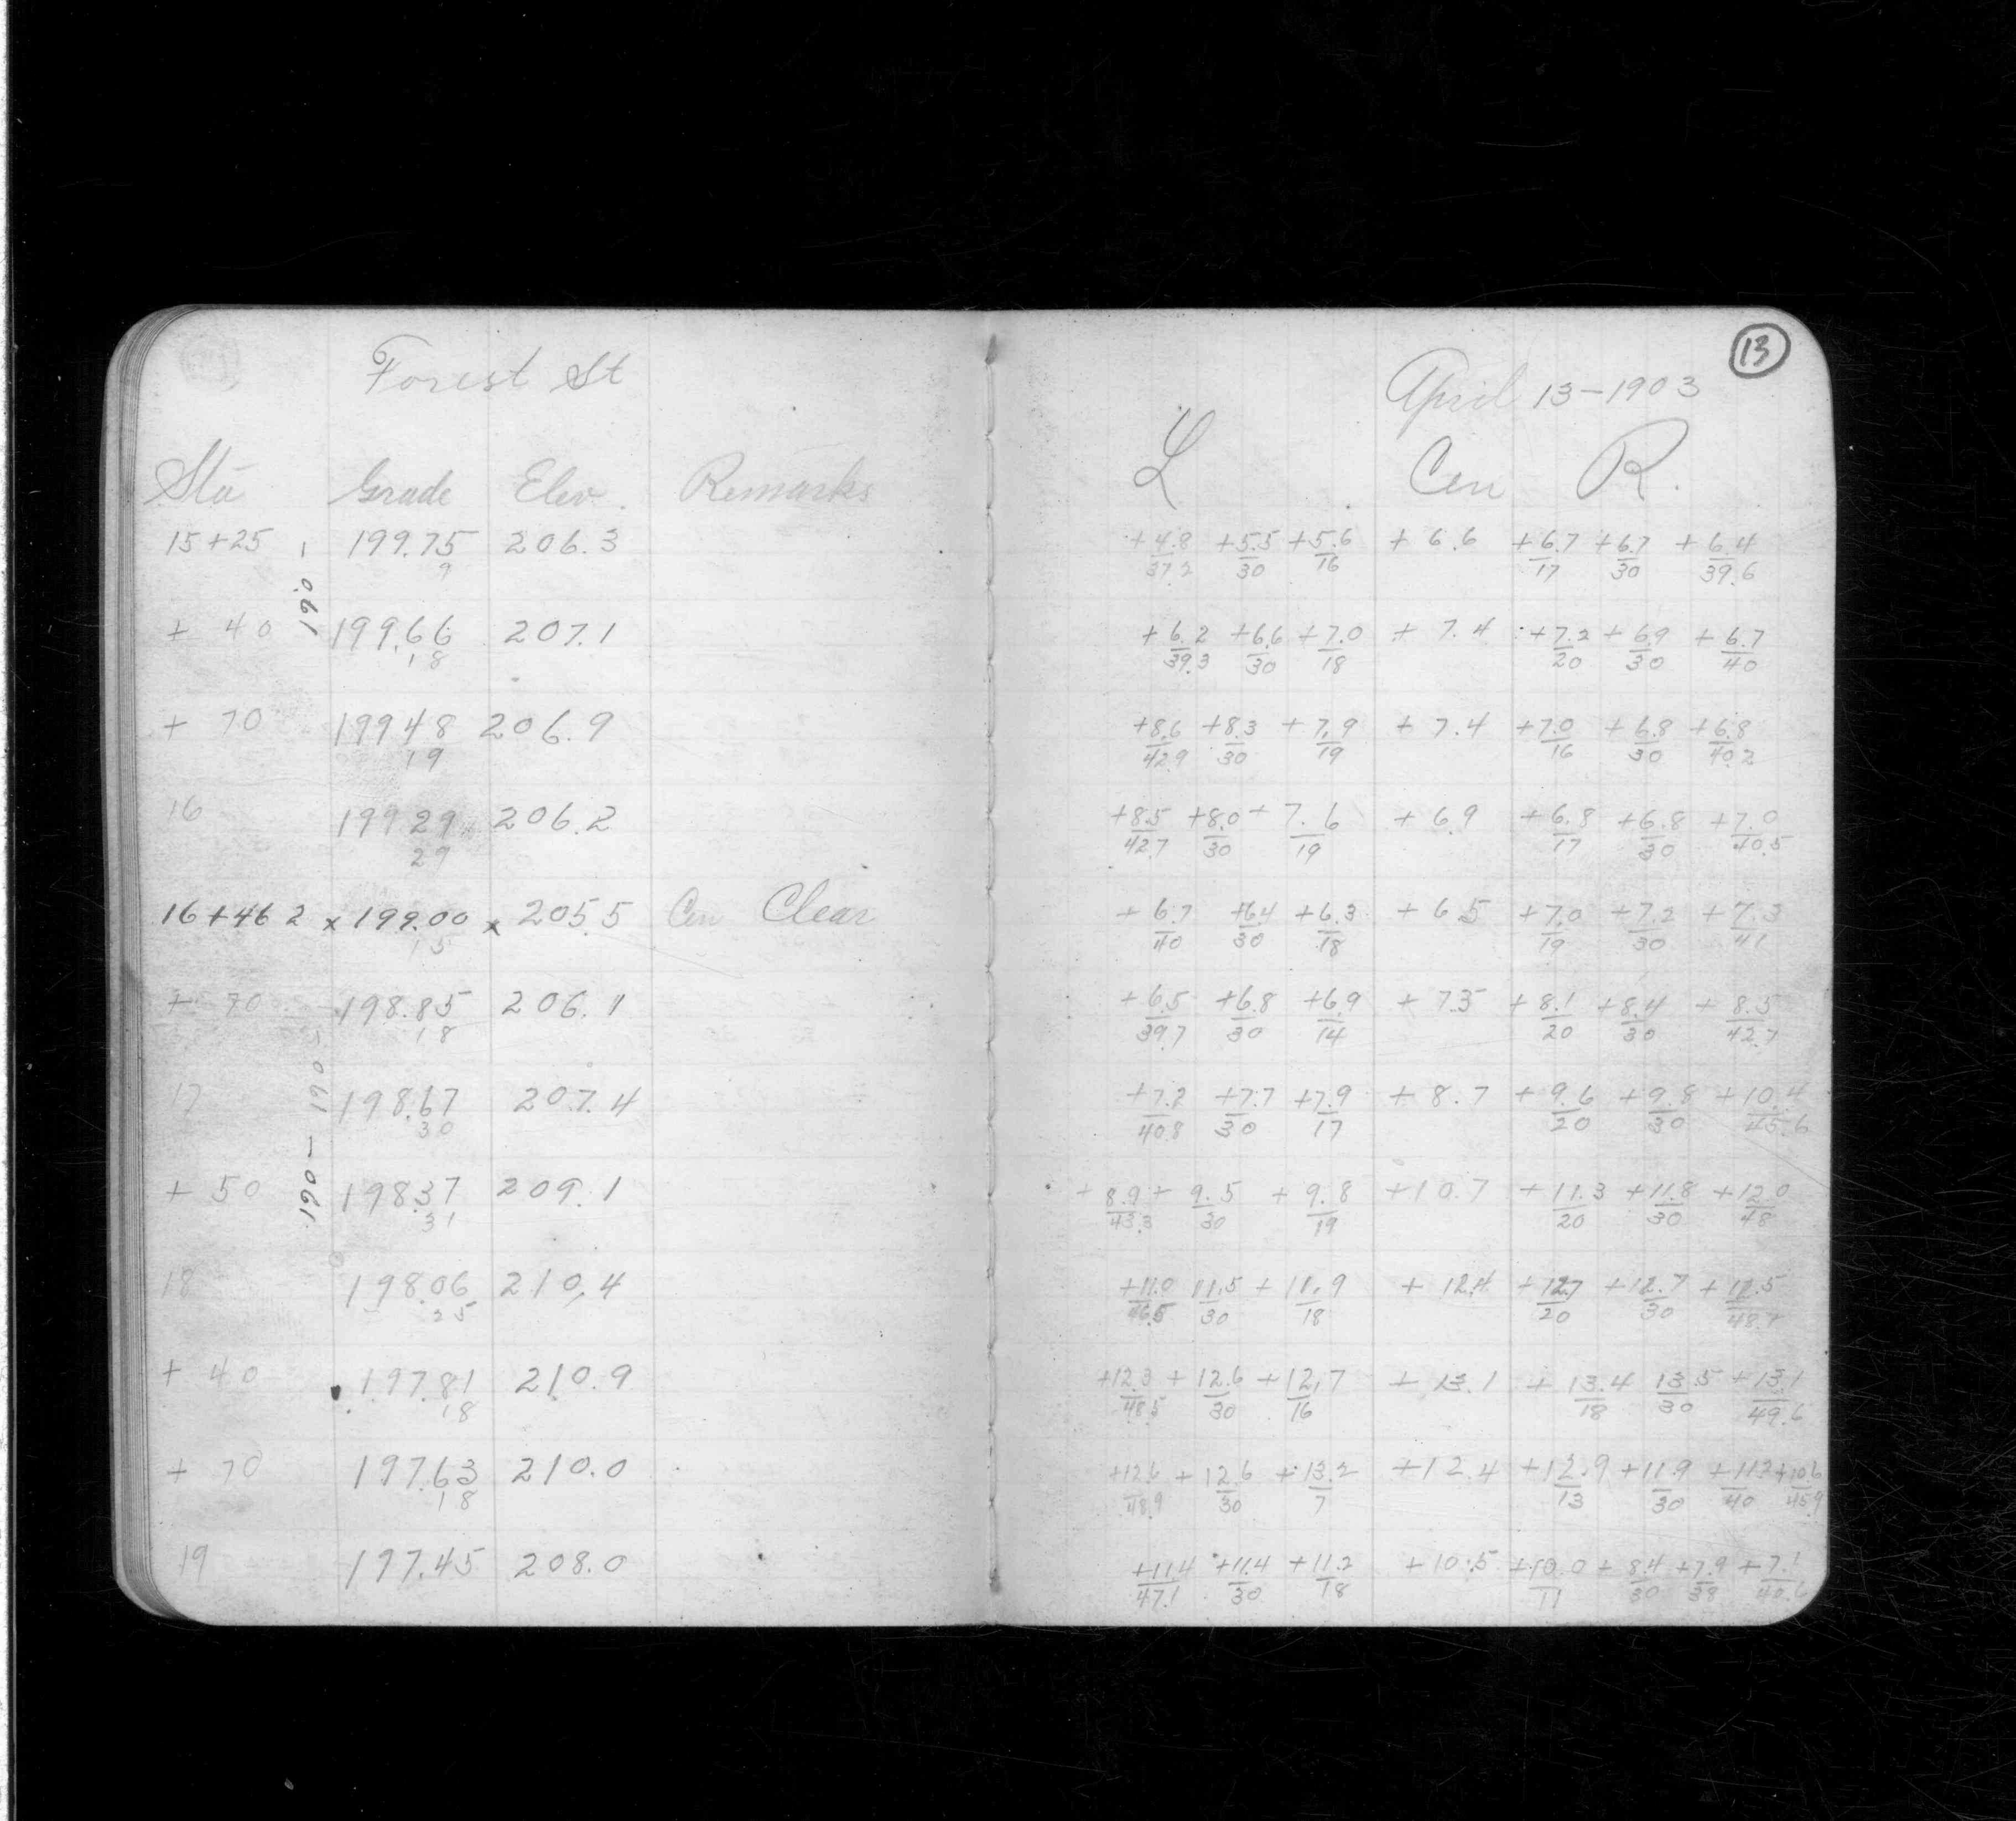 13
Forest St
April 13-1903
Sta Grade Elev. Remarks L Cen R.
15+25 199.75 206.3 +4.8 +5.5 +5.6 +6.6 +6.7 +6.7 +6.4
9 37.2 30 16 17 30 39.6
190
+ 40 199.66 207.1 +6.2 +6.6 +7.0 +7.4 +7.2 +6.9 +6.7
18 39.3 30 18 20 30 40
+ 70 19948 206.9 +8.6 +8.3 +7.9 +7.4 +7.0 +6.8 +6.8
19 42.9 30 19 16 30 40.2
16 19929 206.2 +8.5 +8.0 + 7.6 +6.9 +6.8 +6.8 +7.0
29 42.7 30 19 17 30 40.5
16+46 2 x 199.00 x 205.5 Cen Clear +6.7 +6.4 +6.3 +6.5 +7.0 +7.2 +7.3
15 40 30 18 19 30 41
+ 70 198.85 206.1 +6.5 +6.8 +6.9 +7.5 +8.1 +8.4 +8.5
18 39.7 30 14 20 30 42.7
17 198.67 207.4 +7.2 +7.7 +7.9 +8.7 +9.6 +9.8 +10.4
30 40.8 30 17 20 30 45.6
190 - 190
+ 50 198.37 209.1 + 8.9 + 9.5 + 9.8 +10.7 +11.3 +11.8 +12.0
31 43.3 30 19 20 30 48
18 198.06 210.4 +11.0 11.5 + 11.9 + 12.4 +12.7 +12.7 +12.5
25 46.5 30 18 20 30 48.7
+ 40 197.81 210.9 +12.3 + 12.6 + 12.7 + 13.1 + 13.4 13.5 +13.1
18 48.5 30 16 18 30 49.6
+ 70 197.63 210.0 +12.6 + 12.6 +13.2 +12.4 +12.9 +11.9 +11.2 +10.6
18 48.9 30 7 13 30 40 45.9
19 197.45 208.0 +11.4 +11.4 +11.2 +10.5 +10.0 + 8.4 +7.9 +7.1
47.1 30 18 11 30 38 40.6